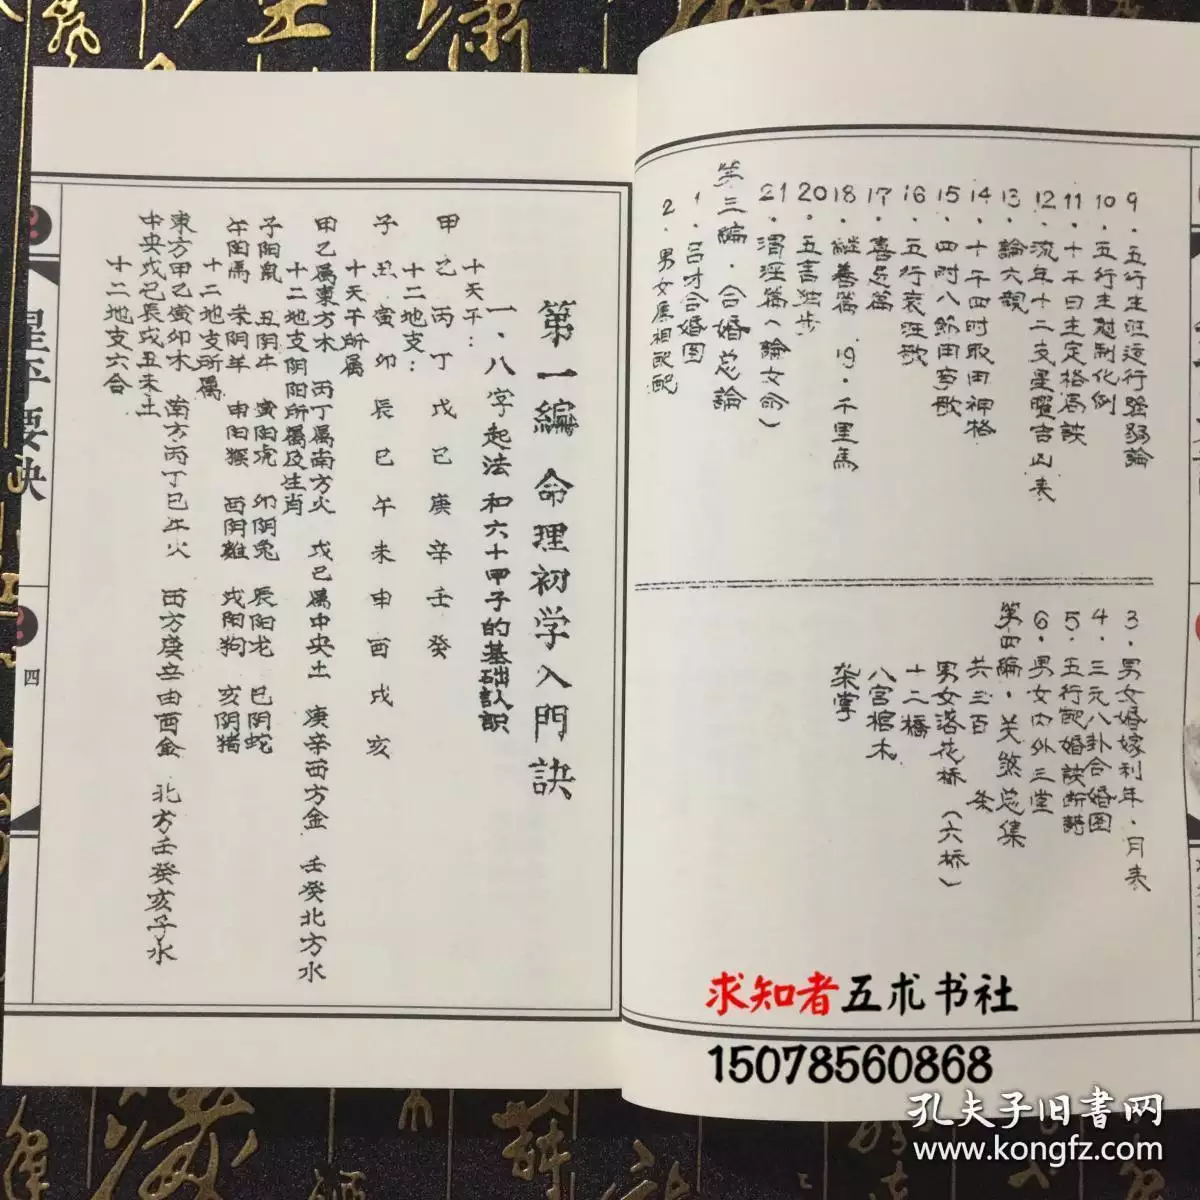 9．五行生旺运行强弱論
10．五行生尅制化例
11．十干日主定格局訣
12．流年十二支星曜吉凶表
13．論六親
14．十干四时取用神格
15．四时八節用事歌
16．五行衰旺歌
17．喜忌篇
18．継善篇 19．千里馬
20．五言独步
21．渭泾篇（論女命）
第三編．合婚总論
1．吕才合婚图
2．男女屬相配配
3．男女婚嫁利年．月表
4．三元八卦合婚图
5．五行配婚訣断語
6．男女内外三堂
第四編．关煞总集
共三百 条
男女落花桥（六桥）
十二橋
八宫棺木
第一編 命理初学入門訣
一．八字起法和六十甲子的基础认識
十天干：
甲乙丙丁戊己庚辛壬癸
十二地支：
子丑寅卯辰巳午未申酉戌亥
十天干所属
甲乙属東方木 丙丁属南方火 戊己属中央土 庚辛西方金 壬癸北方水
十二地支阴阳所属及生肖
子阳鼠 丑阴牛 寅阳虎 卯阴兔 辰阳龙 巳阴蛇
午阳馬 未阴羊 申阳猴 酉阴雞 戌阳狗 亥阴猪
十二地支所属
東方甲乙寅卯木 南方丙丁巳午火 西方庚辛申酉金 北方壬癸亥子水
中央戊己辰戌丑未土
十二地支六合
星平要訣
四
求知者五术书社
15078560868
孔夫子旧書网
www.kongfz.com